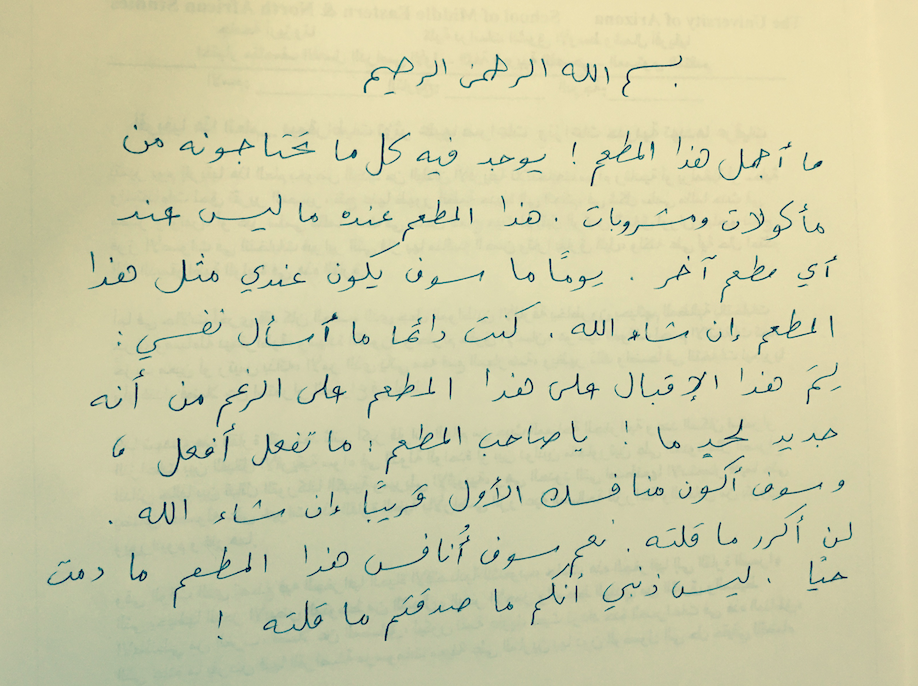 بسم الله الرحمن الرحيم
ما أجمل هذا المطعم ! يوجد فيه كل ما تحتاجونه من
مأكولات ومشروبات . هذا المطعم عنده ما ليس عند
أي مطعم آخر . يومًا ما سوف يكون عندي مثل هذا
المطعم إن شاء الله . كنت دائما ما أسأل نفسي :
لِمَ هذا الإقبال على هذا المطعم على الرغم من أنه
جديد لحدٍ ما ! يا صاحب المطعم : ما تفعل أفعل ،
وسوف أكون منافسك الأول قريبًا إن شاء الله .
لن أكرر ما قلته . نعم سوف أُنافس هذا المطعم ما دمت
حيًا . ليس ذنبي أنكم ما صدقتم ما قلته !